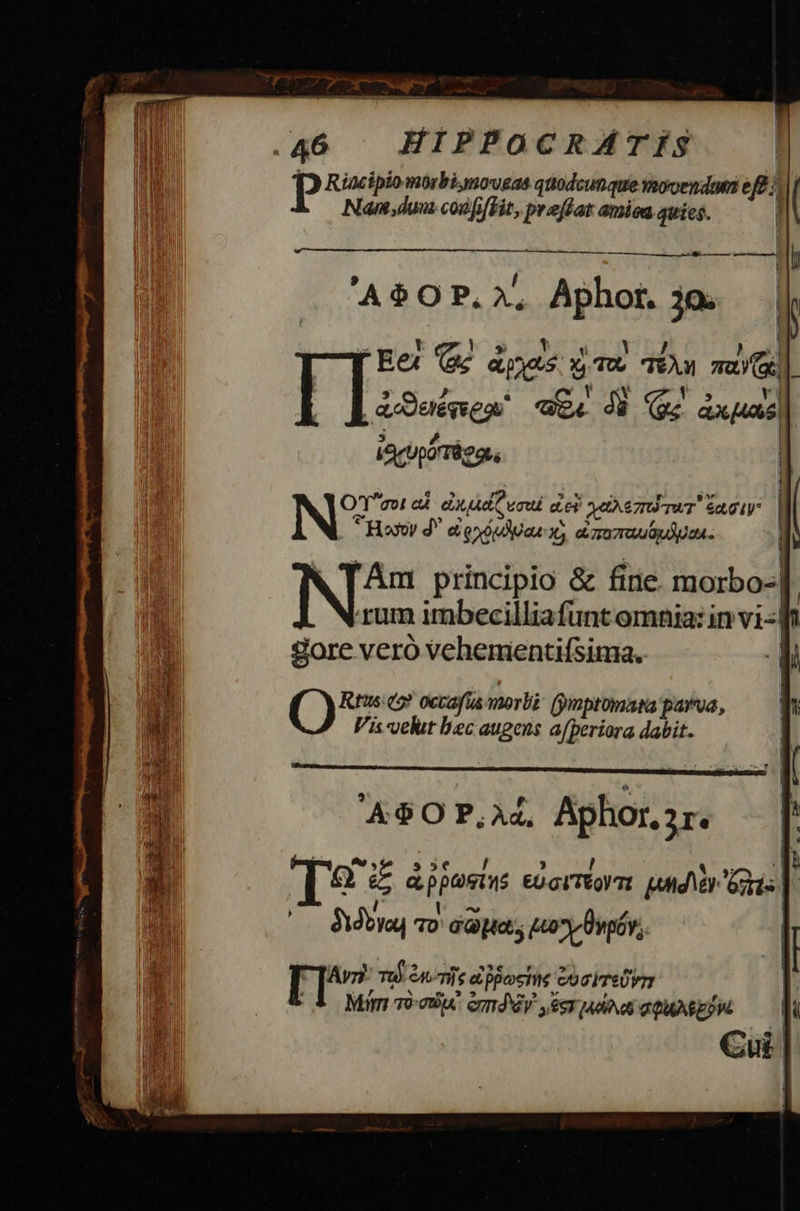 46 HIPPOCRATIS
PRincipio morbi, moveas quodcunque movendum est:
Nam, dum consistit, præstat amica quies.
ἈΦΟΡ. λ΄. Aphor. 30.
ΠΕρὶ τὰς ἀρχὰς καὶ τὰ τέλη πάντα
ἀσθενέστερα· περὶ δὲ τὰς ἀκμὰς
ἰσχυρότερα.
ΝΟΥσοι αἱ ἀκμάζουσαι ἀεὶ χαλεπώτατ' ἔασιν·
Ἧσσον δ' ἀρχόμεναι καὶ ἀποπαυόμεναι.
NAm principio & fine morbo-
rum imbecillia sunt omnia: in vi-
gore verò vehementissima.
ORtus & occasus morbi symptomata parva,
Vis velut hæc augens asperiora dabit.
ἈΦΟΡ. λά. Aphor. 31.
ΤΩ ἐξ ἀῤῥωστίης εὐσιτέοντι μηδὲν ἐπι-
διδόναι τὸ σῶμα, μοχθηρόν.
ἨΑντι τῷ ἐκ τῆς ἀῤῥωστίης εὐσιτεῦντι
Μήτι τὸ σῶμ' ἐπιδῷ, ἔστι μάλα σφαλερόν.
Cui